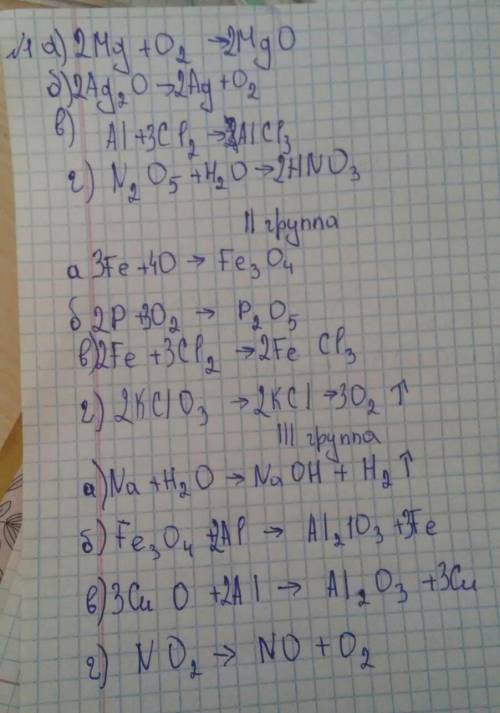 №1 а) 2Mg + O₂ → 2MgO
б) 2Ag₂O → 2Ag + O₂
в) Al + 3Cl₂ → 2AlCl₃
г) N₂O₅ + H₂O → 2HNO₃
II группа
а 3Fe + 4O → Fe₃O₄
б 2P + 3O₂ → P₂O₅
в) 2Fe + 3Cl₂ → 2FeCl₃
г) 2KClO₃ → 2KCl → 3O₂ ↑
III группа
а) Na + H₂O → NaOH + H₂ ↑
б) Fe₃O₄ + 2Al → Al₂O₃ + 3Fe
в) 3CuO + 2Al → Al₂O₃ + 3Cu
г) NO₂ → NO + O₂